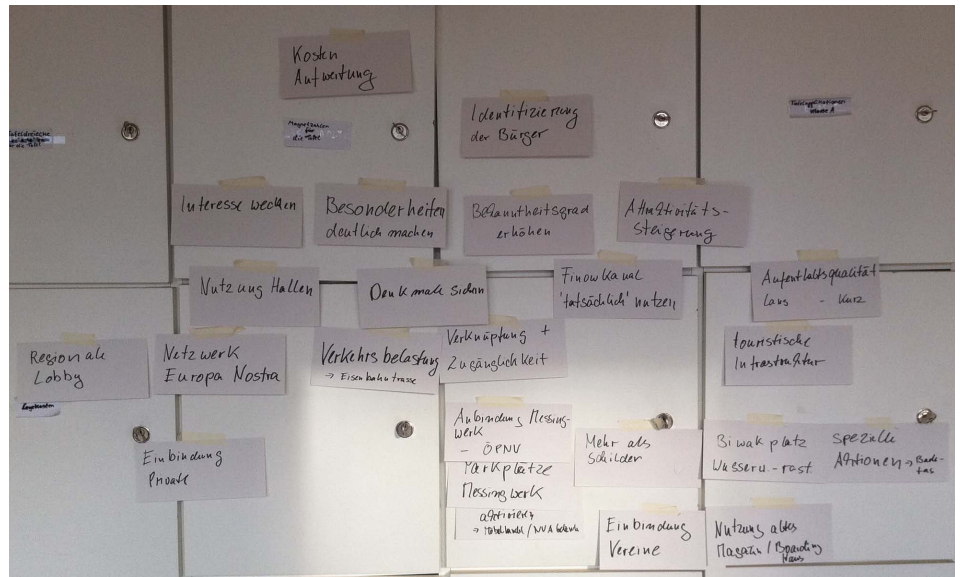 Kosten
Aufwertung
Identifizierung
der Bürger
Magnettafeln
für
die Tafel
Interesse wecken
Besonderheiten
deutlich machen
Bekanntheitsgrad
erhöhen
Attraktivitäts-
steigerung
Nutzung Hallen
Denkmale sichern
Finowkanal
'tatsächlich' nutzen
Aufenthaltsqualität
lang - kurz
Regionale
Lobby
Netzwerk
Europa Nostra
Verkehrsbelastung
→ Eisenbahntrasse
Verknüpfung +
Zugänglichkeit
touristische
Infrastruktur
Einbindung
Private
Anbindung Messing-
werk
- ÖPNV
Parkplätze
Messingwerk
aktivieren
→ / NVA
Mehr als
Schilder
Biwakplatz
Wasserw.-rast.
spezielle
Aktionen → Bade-
Einbindung
Vereine
Nutzung altes
Magazin / Boarding
Haus